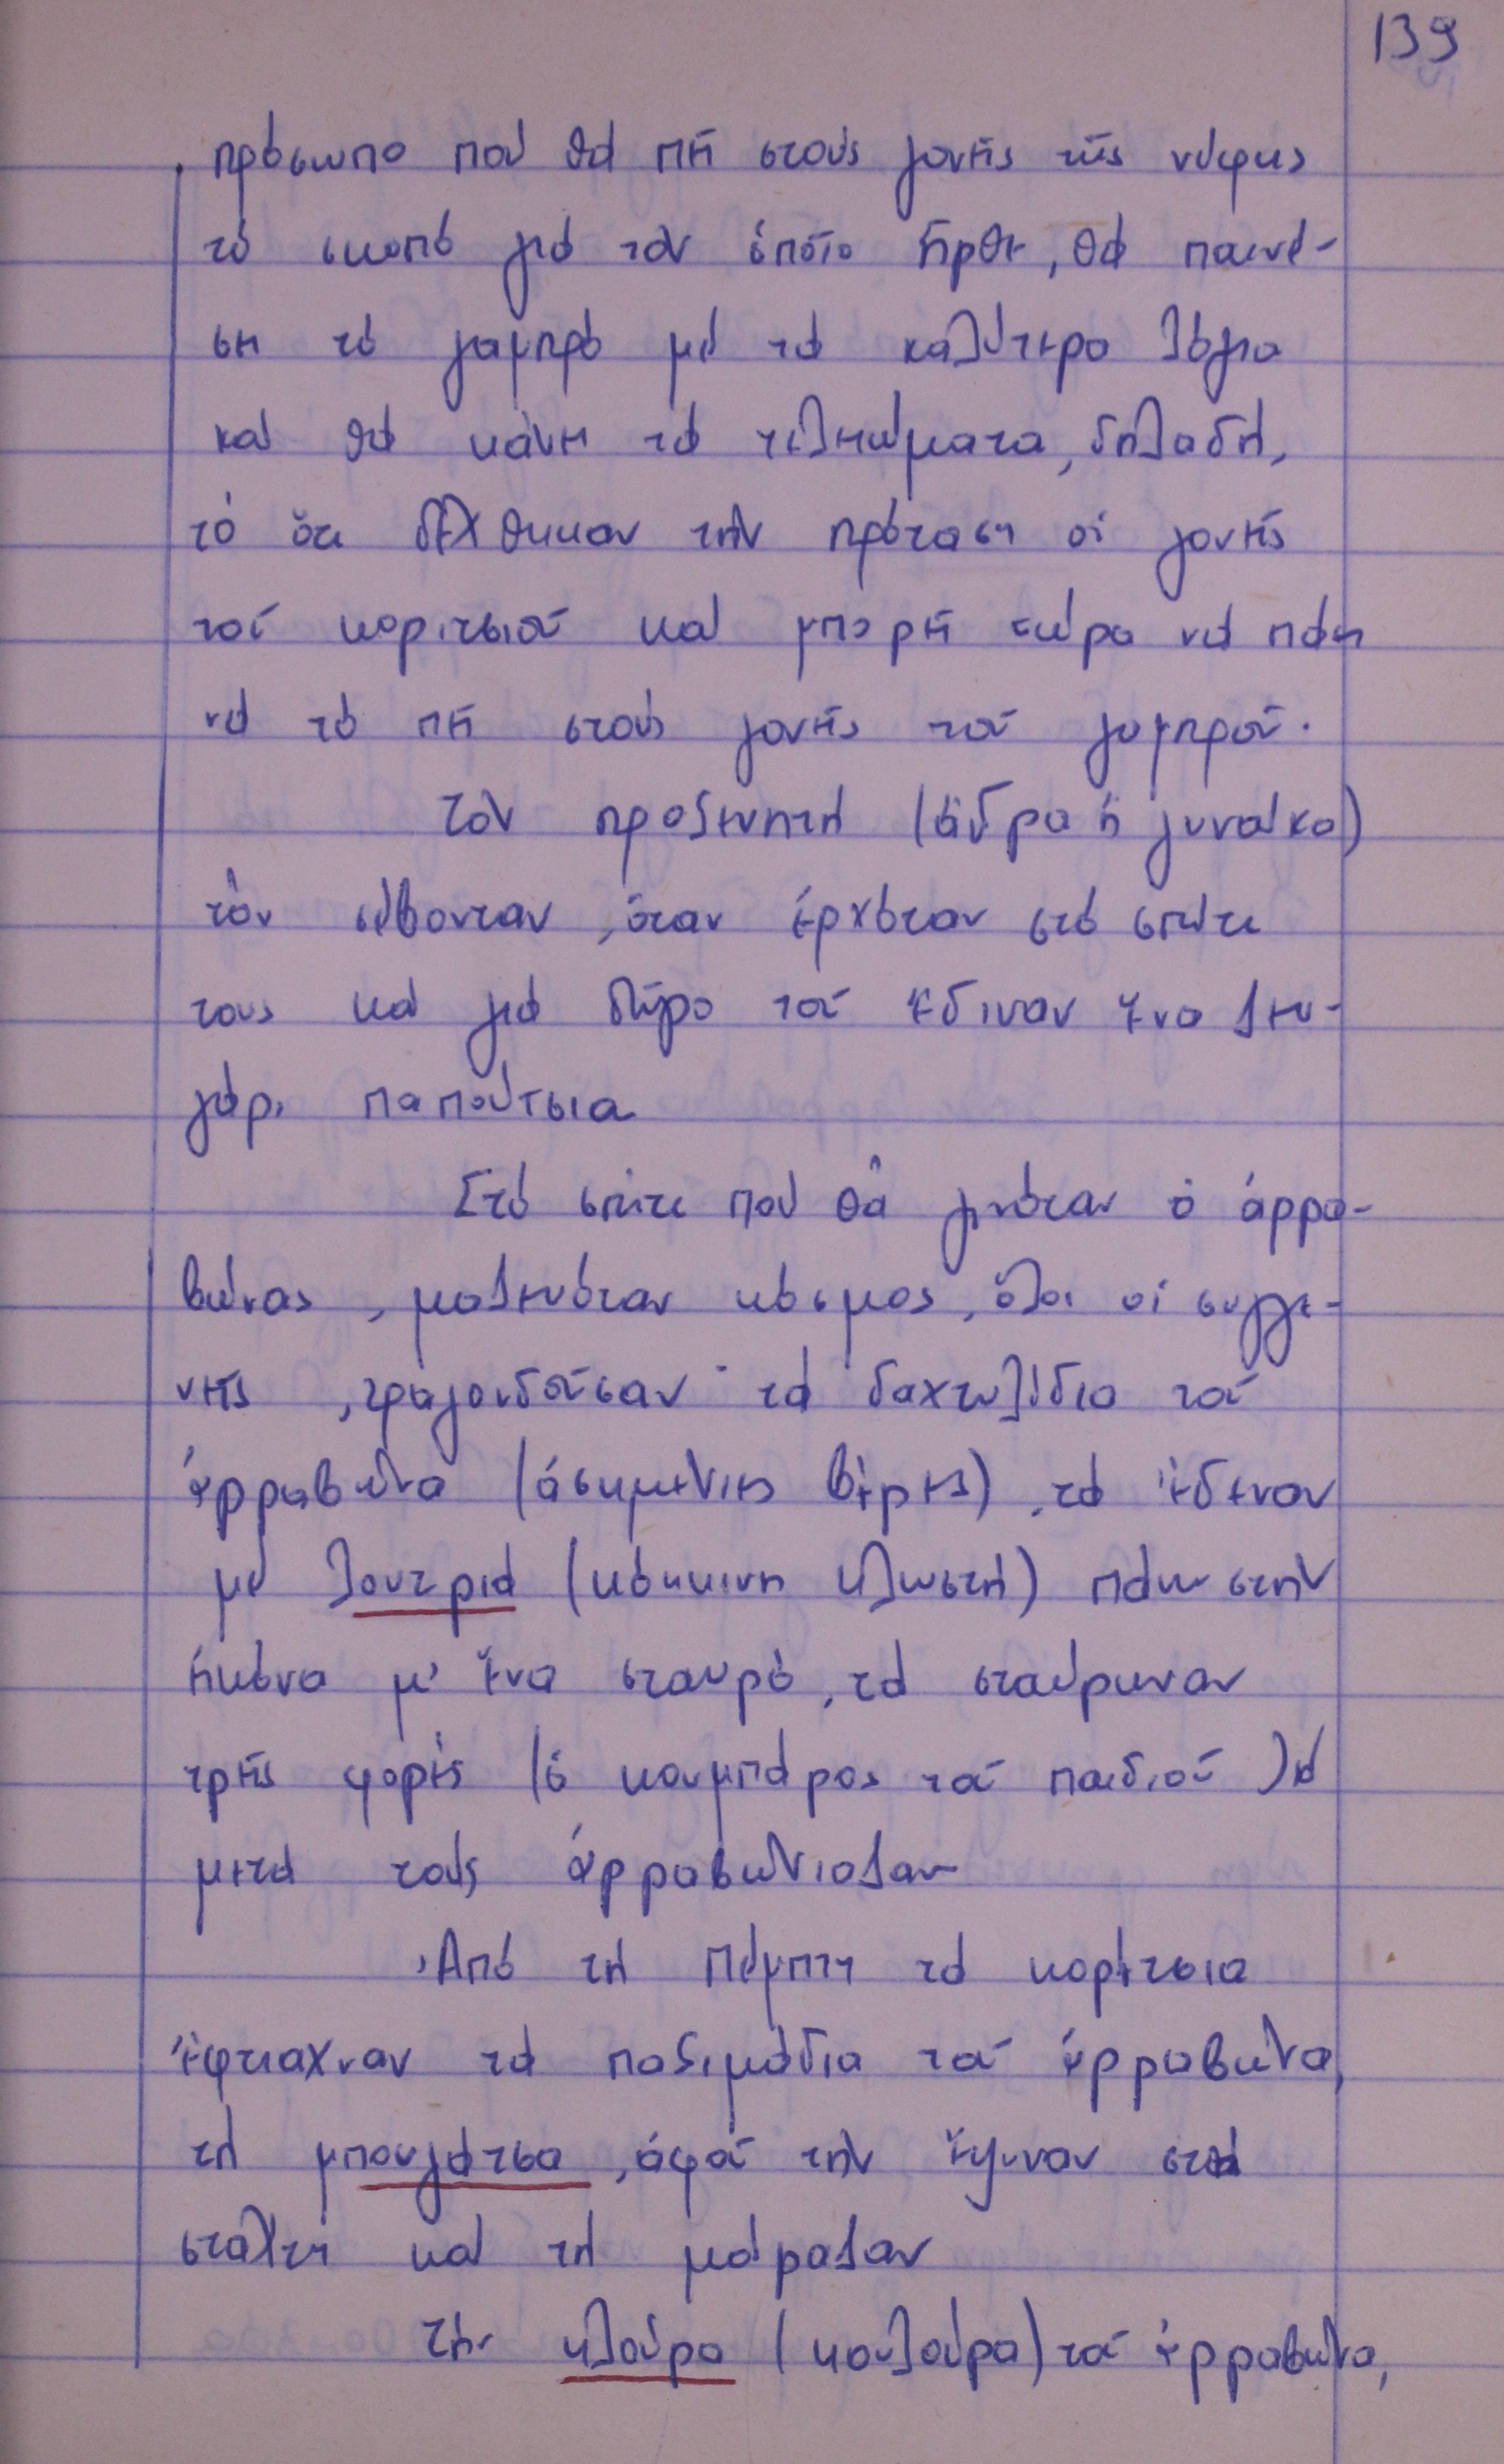 139
πρόσωπο που θά πῆ στούς γονεῖς τῆς νύφης
τό σκοπό γιά τόν ὁποῖο ἦρθε, θά παινέ-
ση τό γαμπρό μέ τά καλύτερα λόγια
καί θά κάνη τά τελειώματα, δηλαδή,
τό ὅτι δέχθηκαν τήν πρόταση οἱ γονεῖς
τοῦ κοριτσιοῦ καί μπορεῖ τώρα νά πάη
νά τό πῆ στούς γονεῖς τοῦ γαμπροῦ.
Τόν προξενητή (ἄδρα ἤ γυναίκα)
τόν σέβονταν, ὅταν ἐρχόταν στό σπίτι
τους καί γιά δῶρο τοῦ ἔδιναν ἕνα ζευ-
γάρι παπούτσια
Στό σπίτι πού θά γινόταν ὁ ἀρρα-
βώνας, μαζευόταν κόσμος, ὅλοι οἱ συγγε-
νεῖς, τραγουδοῦσαν τά δαχτυλίδια τοῦ
ἀρραβώνα (ἀσημένιες βέρες), τά ἔδεναν
μέ λουτριά (κόκκινη κλωστή) πάνω στήν
εἰκόνα μ' ἕνα σταυρό, τά σταύρωναν
τρεῖς φορές (ὁ κουμπάρος τοῦ παιδιοῦ) κι
μετά τούς ἀρραβώνιαζαν
Ἀπό τή Πέμπτη τά κορίτσια
ἔφτιαχναν τά παξιμάδια τοῦ ἀρραβώνα,
τή μπουγάτσα, ἀφοῦ τήν ἔψηναν στή
στάχτη καί τή μοίραζαν
Τήν κλούρα (κουλούρα) τοῦ ἀρραβώνα,